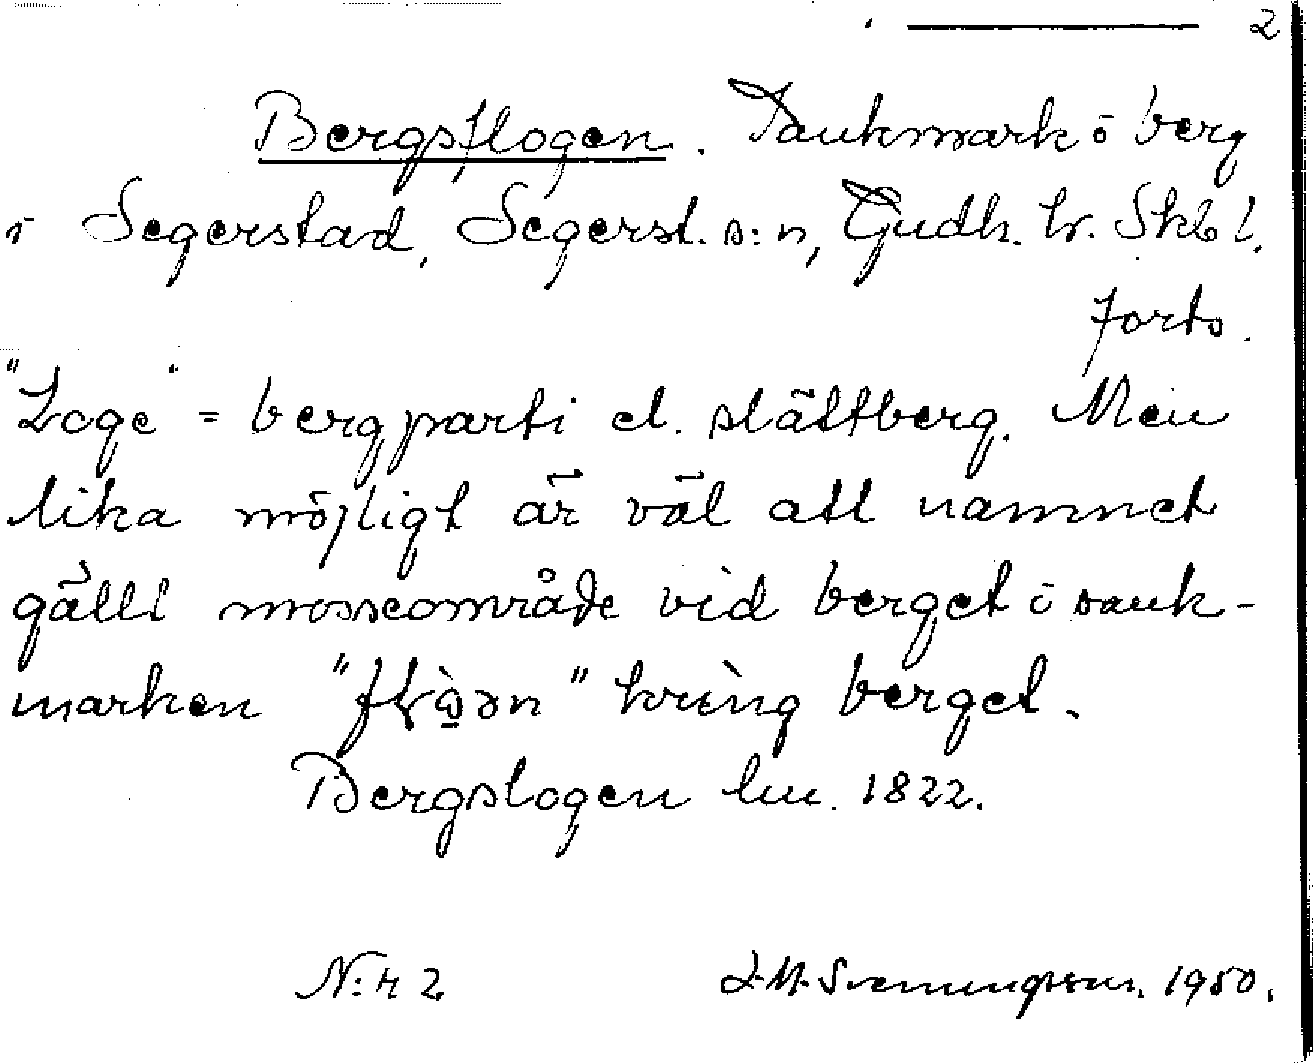 2
Bergsflogen. Sankmark i berg
i Segerstad, Segerst. s:n, Gudh. hr. Skb l.
forts.
"Loge" = bergparti el. slättberg. Men
lika möjligt är väl att namnet
gällt mosseområde vid berget i sank-
marken " " kring berget.
Bergslogen lm. 1822.
N:r 2 1950.